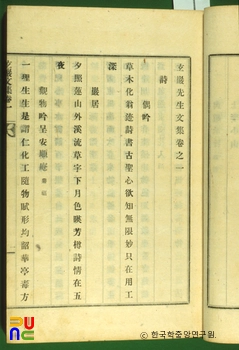 玄巖先生文集卷之一
詩
偶吟
草木化翁詩書古聖心欲知無限妙只在用工
深
巖居
夕照蓮山外溪流草宇下月色暎芳樹詩情在五
夜
觀物吟呈安
一理生生是謂仁化工隨物賦形均韶華亭毒方
玄巖文集卷一
一
PUNC
한국학중앙연구원